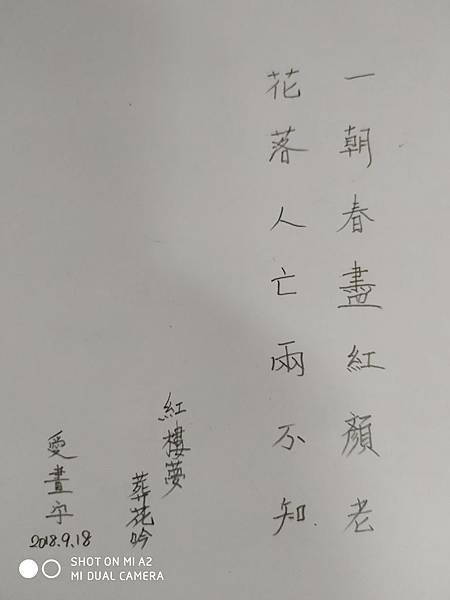 一朝春盡紅顏老
花落人亡兩不知.
紅樓夢
葬花吟
愛畫字
2018.9.18
SHOT ON MI A2
MI DUAL CAMERA